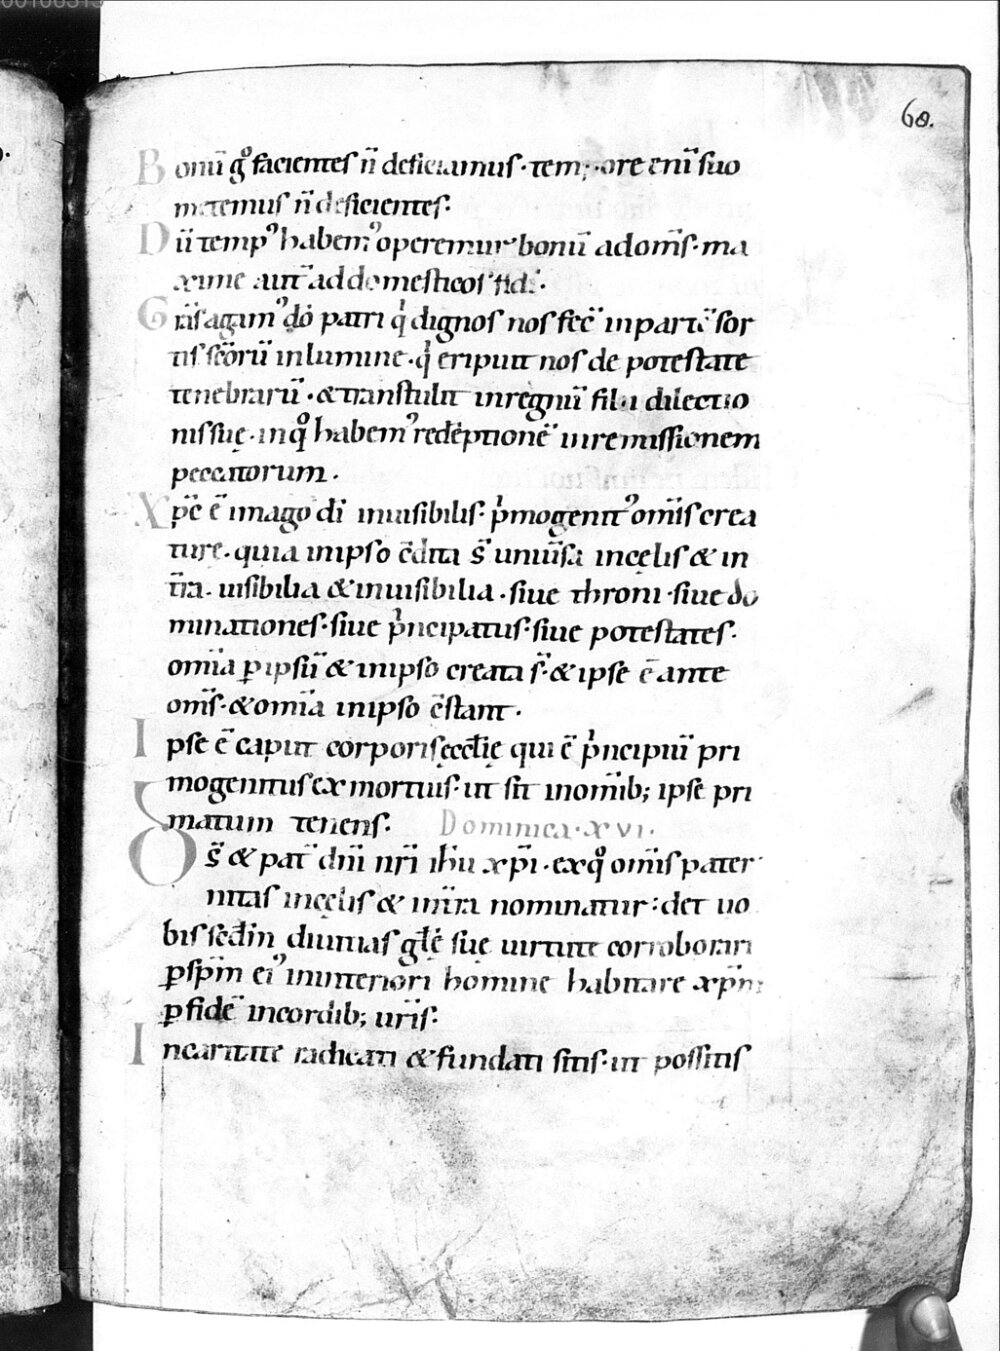 68.
Bonū gͦ facientes n̄ deficiamus· tempore enī suo
metemus n̄ deficientes·
Dū tempꝰ habemꝰ operemur bonū ad om̄s· ma
xime aut̄ ad domesticos fidei·
Gr̄as agamꝰ dō patri qͥ dignos nos fec̄ in partē sor
tis sc̄orū in lumine· qͥ eripuit nos de potestate
tenebrarū· & transtulit in regnū filii dilectio
nis suę· in qͦ habemꝰ redēptionē in remissionem
peccatorum·
Xp̄c ē imago dī inuisibilis· pͥmogenitꝰ om̄is crea
ture· quia in ipso c̄dita s̄ uniūsa in cęlis & in
t̄ra· uisibilia & inuisibilia· siue throni· siue do
minationes· siue pͥncipatus· siue potestates·
om̄ia ꝑ ipsū & in ipso creata s̄· & ipse ē ante
om̄s· & om̄ia in ipso c̄stant·
Ipse ē caput corporis ęccl̄ię qui ē pͥncipiū pri
mogenitus ex mortuis· ut sit in om̄ib; ipse pri
matum tenens· Dominica· xvi·
Ds̄ & pat̄ dn̄i nr̄i ih̄u xp̄i· ex qͦ om̄is pater
nitas in cęlis & in t̄ra nominatur: det uo
bis sēdm̄ diuitias gl̄ę suę uirtute corroborari
ꝑ sp̄m eiꝰ in interiori homine habitare xp̄m
ꝑ fidē in cordib; ur̄is·
In caritate radicati & fundati sitis· ut possitis